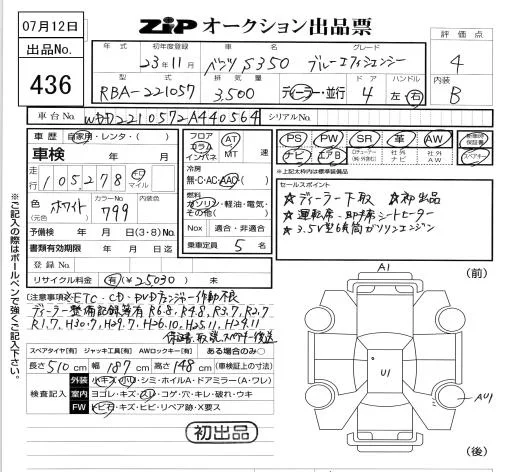 07月12日
ZiP オークション出品票
出品No.
436
年式 初年度登録 車名 グレード
23年11月 ベンツ S350 ブルーエフィシェンシー
型式 排気量 ドア ハンドル
RBA-221057 3,500 ディーラー・並行 4 左・右
評価点
4
内装
B
車台No. WDD2210572A440564 シリアルNo.
車歴 自家用・レンタ・( )
車検 年 月
走行 105,278 キロ マイル
色 (元色) ホワイト カラーNo. 799 内装色
予備検 年 月(3・8)No.
書類有効期限 年 月 日迄
登録No.
リサイクル料金 有(¥25,030) 未
フロア コラム インパネ AT MT 速
冷房 無・C・AC・AAC
燃料 ガソリン・軽油・電気・その他( )
Nox 適合・非適合
乗車定員 5 名
PS PW SR 革 AW 新車時保証書
ナビ エアB 社外ナビ 社外AW スペアキー
※上記太枠内は標準装備品
セールスポイント
★ディーラー下取 ★初出品
★運転席・助手席シートヒーター
★3.5V型6気筒ガソリンエンジン
[注意事項]※ETC・CD・DVDチェンジャー作動不良
ディーラー整備記録簿有 R6.8, R4.8, R3.7, R2.7
R1.7, H30.7, H29.7, H26.10, H25.11, H24.11
保証書、取説、スペアキー後送
スペアタイヤ[有] ジャッキ工具[有] AWロックキー[有] ある場合のみ○
長さ 510 cm 幅 187 cm 高さ 148 cm (車検証以上の寸法)
検査記入 外装 小キズ・小凹・シミ・ホイルA・ドアミラー(A・ワレ)
室内 ヨゴレ・キズ・スレ・コゲ・穴・キレ・破れ・ウキ
FW トビ石・キズ・ヒビ・リペア跡・X要ス
初出品
※ご記入の際はボールペンで強くご記入下さい。
A1
(前)
U1
AU1
(後)